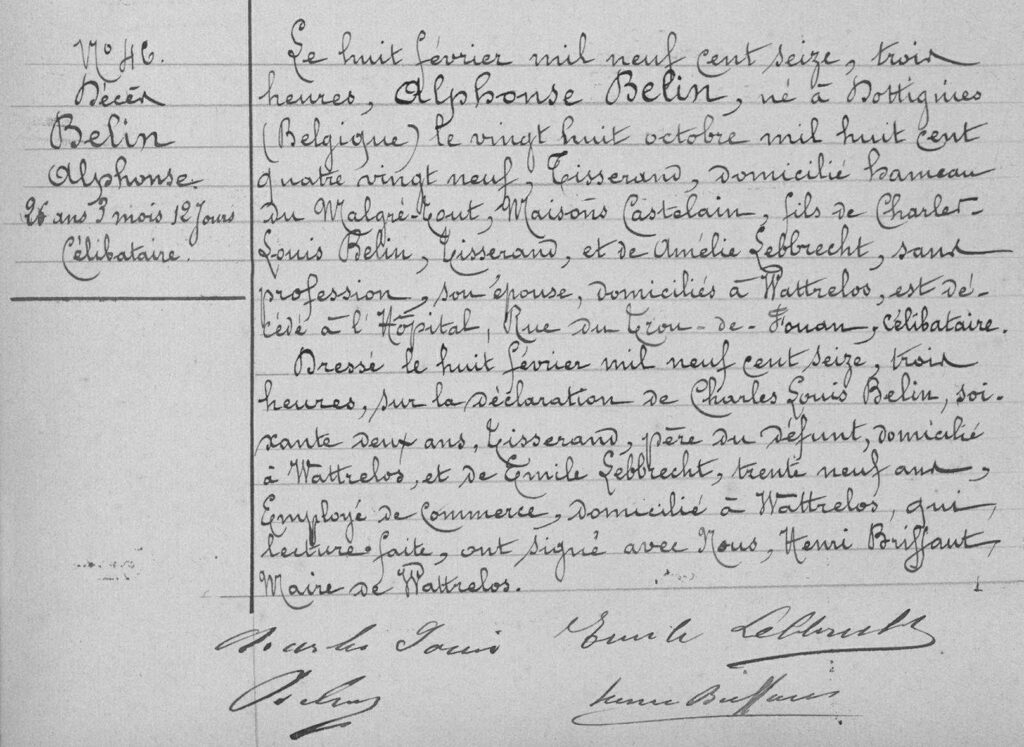 N° 46.
Décès
Belin
Alphonse.
26 ans 3 mois 12 Jours
Célibataire.
Le huit février mil neuf cent seize, trois
heures, Alphonse Belin, né à Dottignies
(Belgique) le vingt huit octobre mil huit cent
quatre vingt neuf, Tisserand, domicilié hameau
du Malgré-Tout, Maisons Castelain, fils de Charles-
Louis Belin, Tisserand, et de Amélie Lebbrecht, sans
profession, son épouse, domiciliés à Wattrelos, est dé-
cédé à l'Hôpital, Rue du Trou-de-Fouan, célibataire.
Dressé le huit février mil neuf cent seize, trois
heures, sur la déclaration de Charles Louis Belin, soi-
xante deux ans, Tisserand, père du défunt, domicilié
à Wattrelos, et de Emile Lebbrecht, trente neuf ans,
Employé de commerce, domicilié à Wattrelos, qui,
lecture faite, ont signé avec Nous, Henri Briffaut,
Maire de Wattrelos.
Charles Louis Emile Lebbrecht
Henri Briffaut